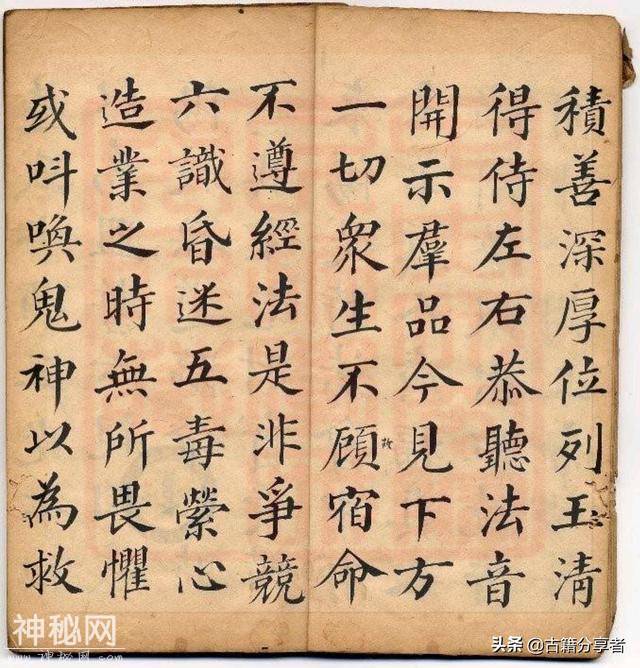 積善深厚位列玉清
得侍左右恭聽法音
開示羣品今見下方
一切衆生不顧宿命
不遵經法是非爭競
六識昏迷五毒縈心
造業之時無所畏懼
或呌喚鬼神以為救
神秘网
头条 @古籍分享者